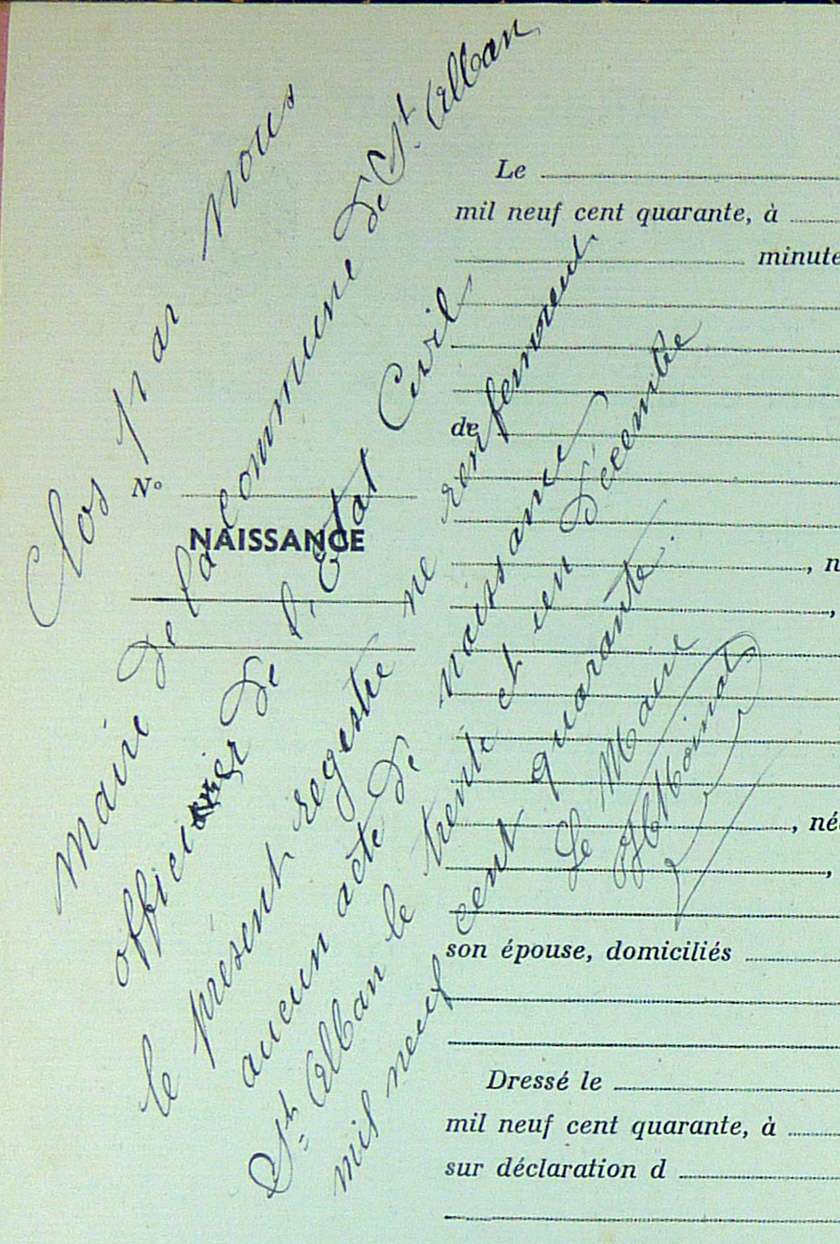 Clos par nous
maire de la commune de St. Alban
officier de l'Etat Civil
le présent registre ne renfermant
aucun acte de naissance
St. Alban le trente et un Décembre
mil neuf cent quarante.
Le Maire
N°
NAISSANCE
Le
mil neuf cent quarante, à
minute
de
, n
,
, née
,
son épouse, domiciliés
Dressé le
mil neuf cent quarante, à
sur déclaration d